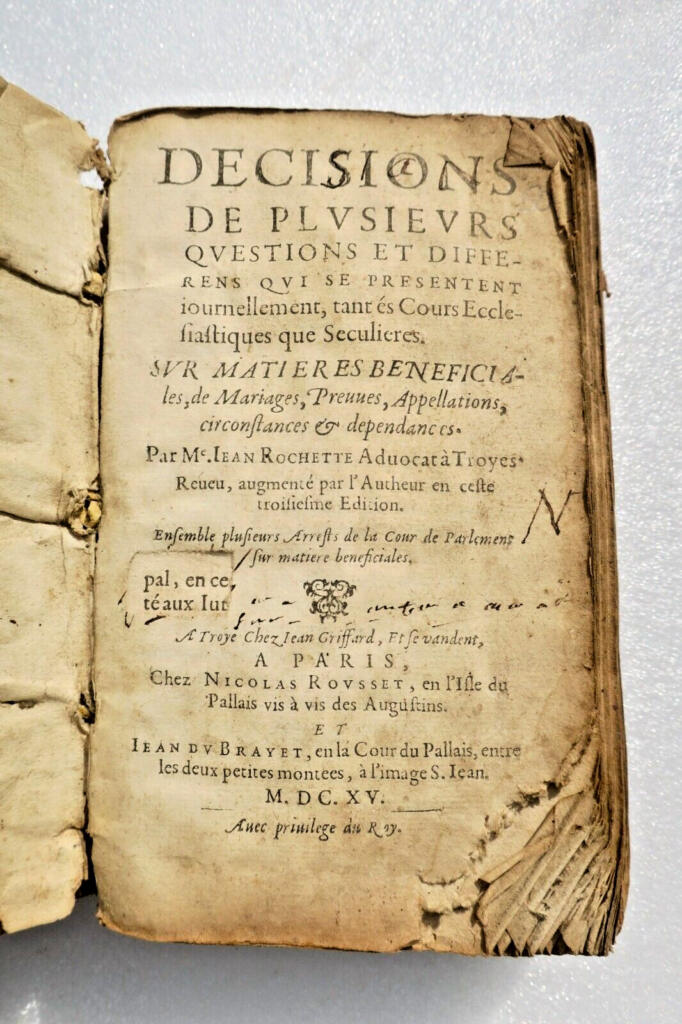 DECISIONS
DE PLVSIEVRS
QVESTIONS ET DIFFE-
RENS QVI SE PRESENTENT
iournellement, tant és Cours Eccle-
siastiques que Seculieres.
SVR MATIERES BENEFICIA-
les, de Mariages, Preuues, Appellations,
circonstances & dependances.
Par Mᵉ. IEAN ROCHETTE Aduocat à Troyes.
Reueu, augmenté par l'Autheur en ceste
troisiesme Edition.
Ensemble plusieurs Arrests de la Cour de Parlement
sur matiere beneficiales.
pal, en ce
té aux Iut
A Troye Chez Iean Griffard, Et se vandent,
A PARIS,
Chez NICOLAS ROVSSET, en l'Isle du
Pallais vis à vis des Augustins.
ET
IEAN DV BRAYET, en la Cour du Pallais, entre
les deux petites montees, à l'image S. Iean.
M. DC. XV.
Auec priuilege du Roy.